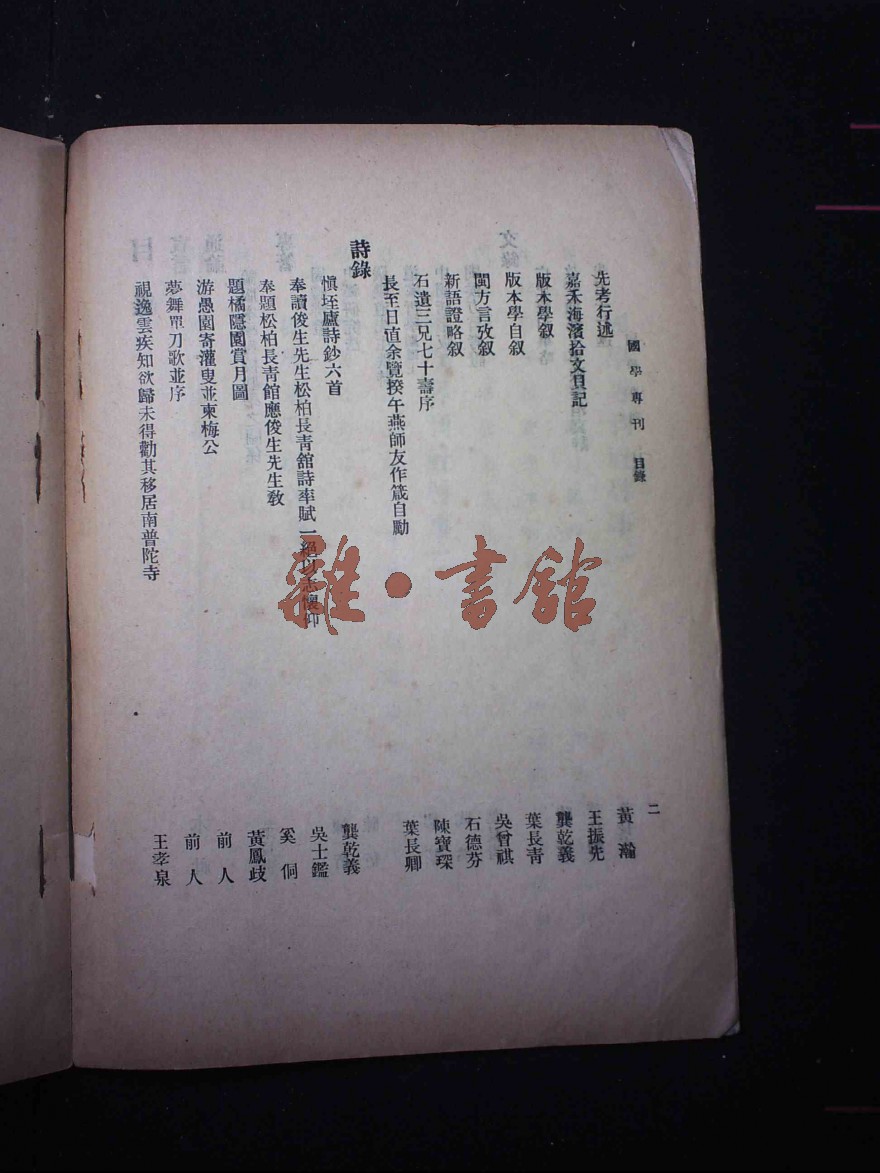 國學專刊 目錄 二
先考行述 黃瀚
嘉禾海濱拾文貝記 王振先
版本學叙 龔乾義
版本學自叙 葉長青
閩方言攷叙 吳曾祺
新語證略叙 石德芬
石遺三兄七十壽序 陳寶琛
長至日值余覽揆午燕師友作箴自勵 葉長卿
詩錄
愼坯廬詩鈔六首 龔乾義
奉讀俊生先生松柏長靑舘詩率賦一絕以志懷仰 吳士鑑
奉題松柏長靑館應俊生先生敎 奚侗
題橘隱園賞月圖 黃鳳歧
游愚園寄灌叟並柬梅公 前人
夢舞單刀歌並序 前人
視逸雲疾知欲歸未得勸其移居南普陀寺 王孝泉
雜·書館